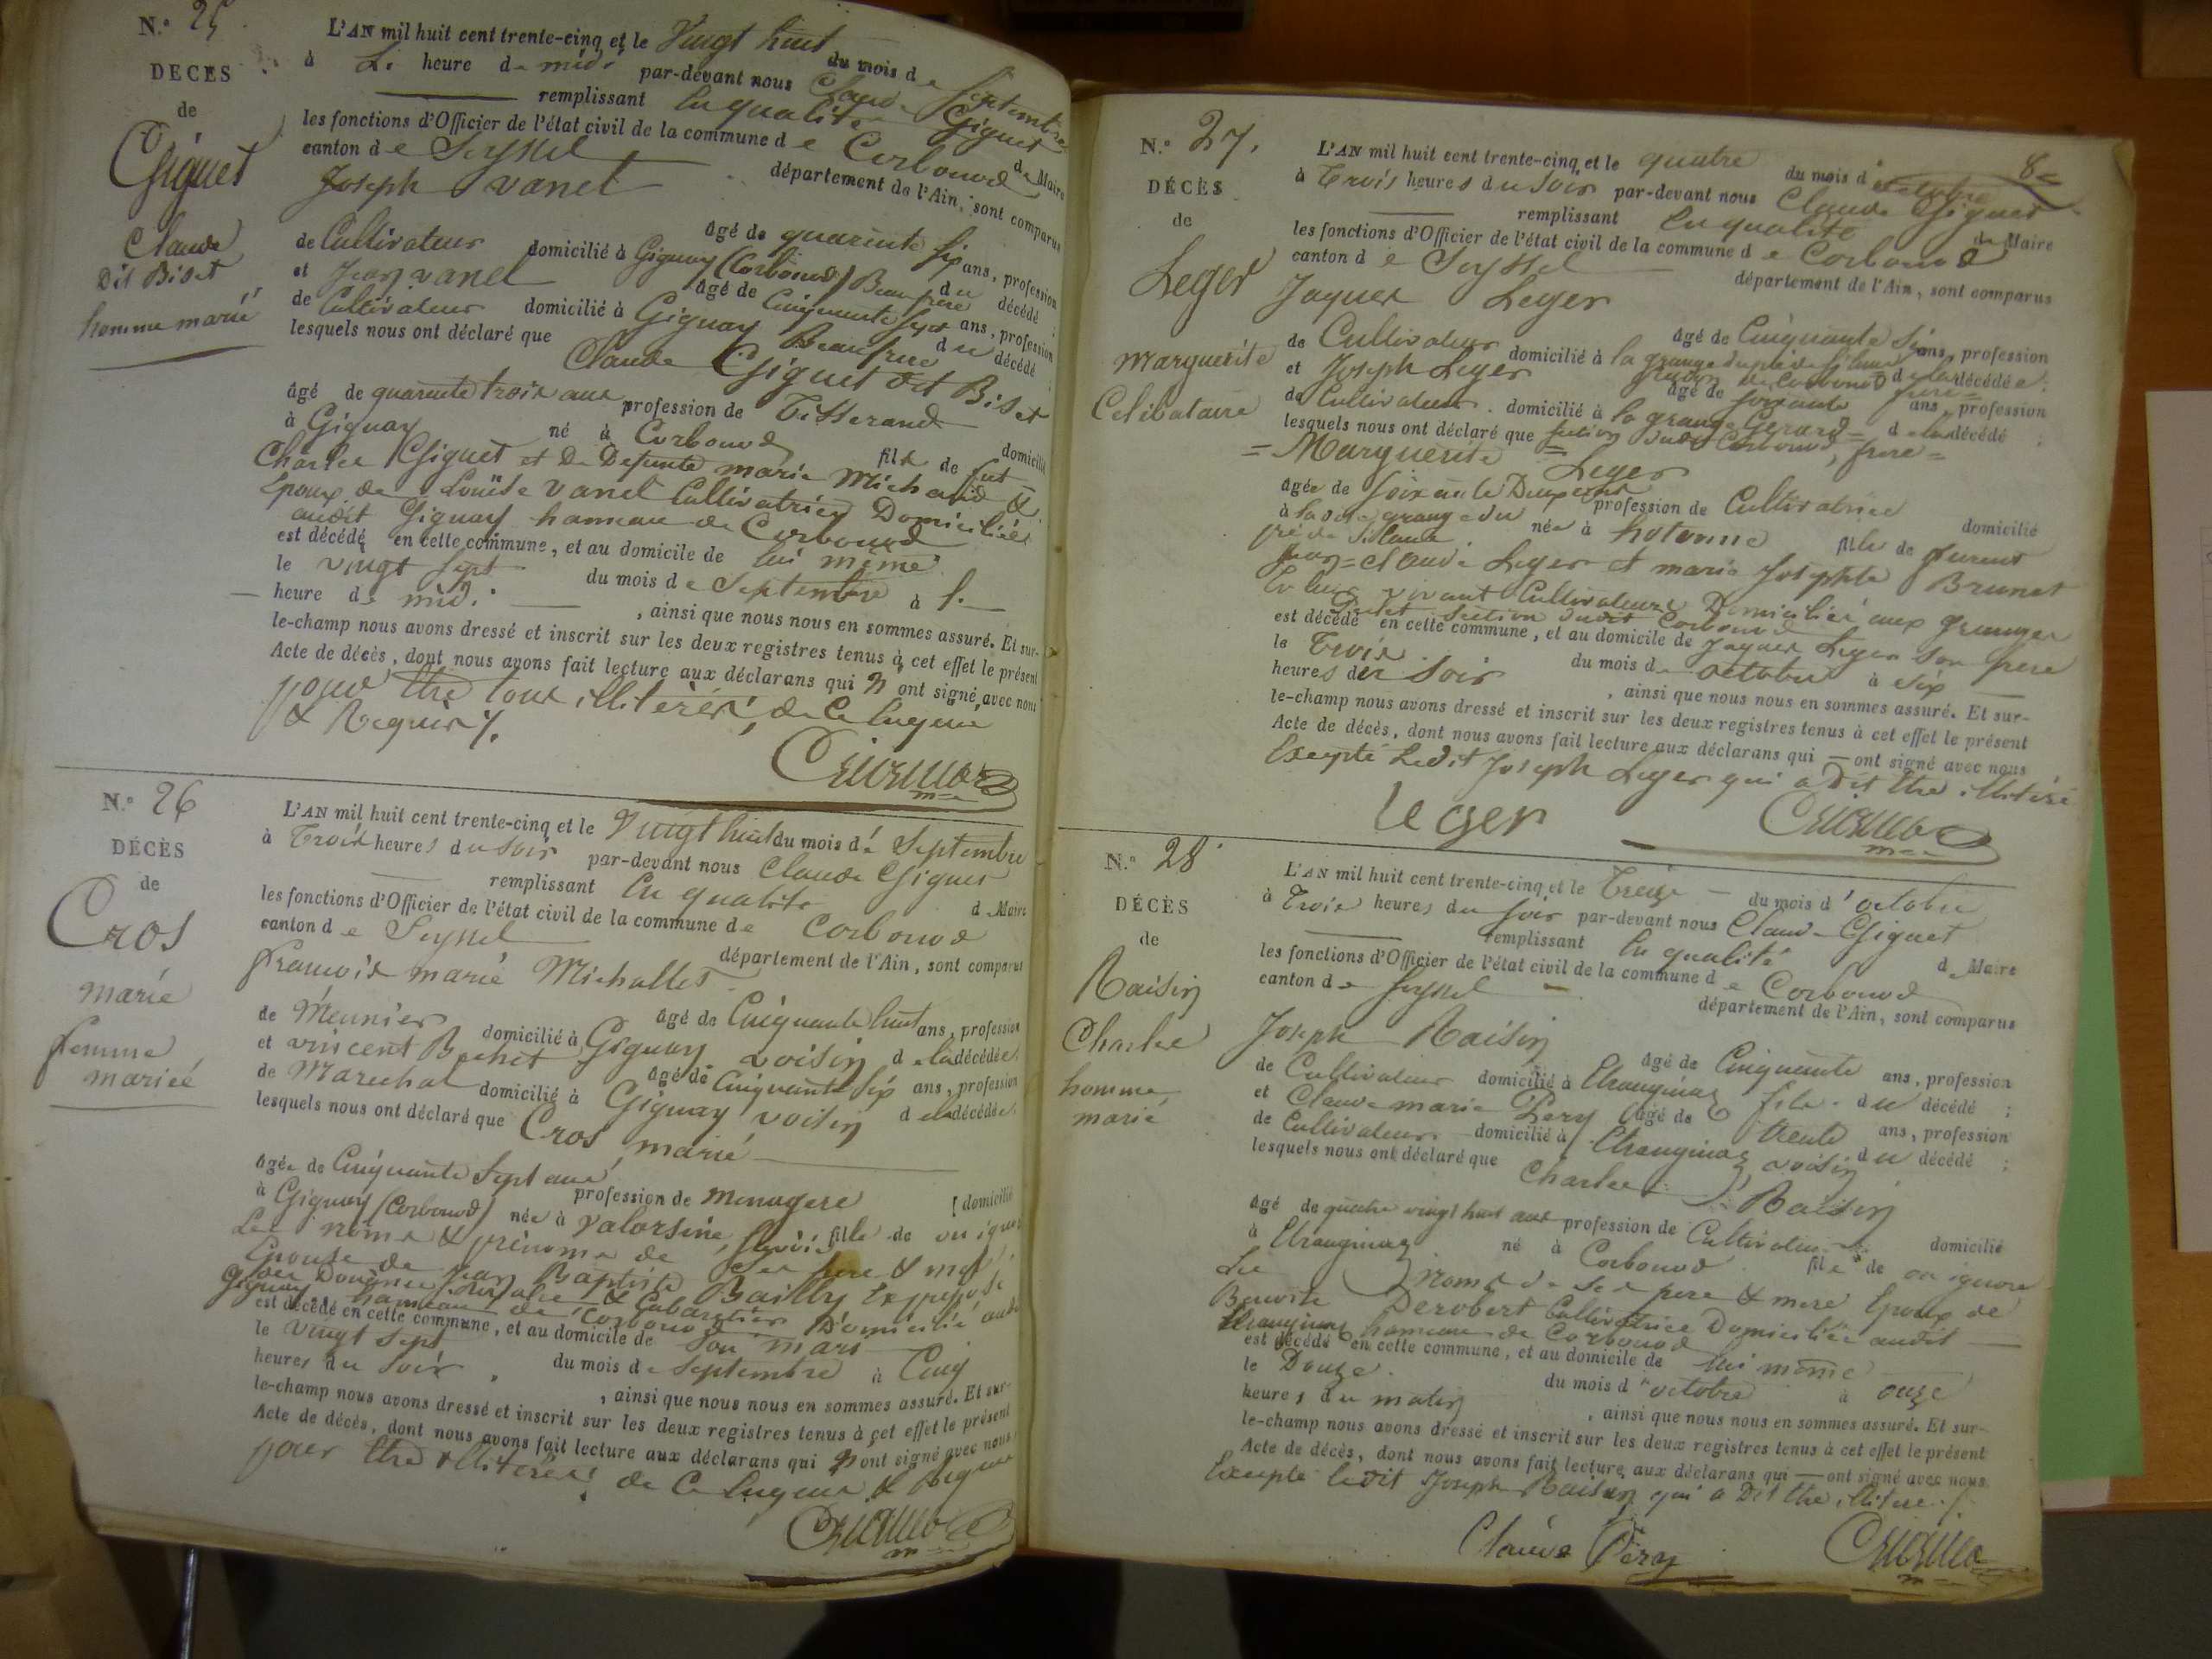 N.° 25
DECES
de
Giguet
Claude
Dit Biset
homme marié
L'AN mil huit cent trente-cinq et le Vingt huit du mois de Septembre
à heure de midi par-devant nous Claude Giguet
remplissant En qualité de Maire
les fonctions d'Officier de l'état civil de la commune de Corbonod
canton de Seyssel département de l'Ain, sont comparus
Joseph Vanel
agé de quarante six ans, profession
de Cultivateur domicilié à Gignay (Corbonod) Beaufrere du décédé ;
et Jean Vanel agé de Cinquante sept ans, profession
de Cultivateur domicilié à Gignay Beaufrere du décédé ;
lesquels nous ont déclaré que Claude Giguet dit Biset
âgé de quarante trois ans profession de Tisserand domicilié
à Gignay né à Corbonod fils de fut
Charles Giguet et De Defunte marie Michaud &
Epoux de Louise Vanel Cultivatrice Domiciliée
audit Gignay hameau de Corbonod
est décédé en cette commune, et au domicile de lui même
le vingt sept du mois de Septembre à
heure de midi , ainsi que nous nous en sommes assuré. Et sur-
le-champ nous avons dressé et inscrit sur les deux registres tenus à cet effet le présent
Acte de décès, dont nous avons fait lecture aux déclarans qui n ont signé avec nous
pour être tous illitérés, de Ce Enquis
& Requis
N.° 26
DÉCÈS
de
Cros
marie
femme
marieé
L'AN mil huit cent trente-cinq et le Vingt huit du mois de Septembre
à Trois heures du Soir par-devant nous Claude Giguet
remplissant En qualité de Maire
les fonctions d'Officier de l'état civil de la commune de Corbonod
canton de Seyssel département de l'Ain, sont comparus
francois marie Michallet
agé de Cinquante huit ans, profession
de Meunier domicilié à Gignay voisin de la décédée
et vincent Bochet agé de Cinquante six ans, profession
de Marechal domicilié à Gignay voisin de la décédée
lesquels nous ont déclaré que Cros marie
agée de Cinquante Sept ans profession de menagere domicilié
à Gignay (Corbonod) née à valorsine fille de on ignore
Les noms & prénoms de Ses pere & mere
Epouse de Jean Baptiste Bailly
& Cabaretier Domicilié audit
Gignay hameau de Corbonod
est décédé en cette commune, et au domicile de Son mari
le vingt sept du mois de Septembre à Cinq
heures du Soir , ainsi que nous nous en sommes assuré. Et sur-
le-champ nous avons dressé et inscrit sur les deux registres tenus à cet effet le présent
Acte de décès, dont nous avons fait lecture aux déclarans qui n ont signé avec nous
pour être illitérés de Ce Enquis & Requis
N.° 27.
DÉCÈS
de
Leger
Marguerite
Celibataire
8
L'AN mil huit cent trente-cinq et le quatre du mois d'octobre
à Trois heures du Soir par-devant nous Claude Giguet
remplissant En qualité de Maire
les fonctions d'Officier de l'état civil de la commune de Corbonod
canton de Seyssel département de l'Ain, sont comparus
Jaques Leger
agé de Cinquante Six ans, profession
de Cultivateur domicilié à la grange du pré de de la décédée ;
et Joseph Leger agé de soixante ans, profession
de Cultivateur domicilié à la grange Gerard de la décédé ;
lesquels nous ont déclaré que section dudit Corbonod, frere =
= Marguerite Leger
agée de Soixante Deux ans profession de Cultivatrice domicilié
à la dite grange du née à hotonne fille de furent
pré de
Jean = Claude Leger et marie Josephte Brunet
En leur vivant Cultivateurs Domiciliés aux granges
section dudit Corbonod
est décédé en cette commune, et au domicile de Jaques Leger son frere
le Trois du mois de octobre à Six
heures du Soir , ainsi que nous nous en sommes assuré. Et sur-
le-champ nous avons dressé et inscrit sur les deux registres tenus à cet effet le présent
Acte de décès, dont nous avons fait lecture aux déclarans qui — ont signé avec nous
Excepté Ledit Joseph Leger qui a Dit être illitéré
leger
N.° 28
DÉCÈS
de
Raisin
Charles
homme
marie
L'AN mil huit cent trente-cinq et le Treize du mois d'octobre
à Trois heures du Soir par-devant nous Claude Giguet
remplissant En qualité de Maire
les fonctions d'Officier de l'état civil de la commune de Corbonod
canton de Seyssel département de l'Ain, sont comparus
Joseph Raisin
agé de Cinquante ans, profession
de Cultivateur domicilié à Etranginaz fils du décédé ;
et Claude marie Pery agé de trente ans, profession
de Cultivateur domicilié à Etranginaz voisin du décédé ;
lesquels nous ont déclaré que Charles Raisin
agé de quatre vingt huit ans profession de Cultivateur domicilié
à Etranginaz né à Corbonod fils de on ignore
Les noms de Ses pere & mere Epoux de
Benoite Derobert Cultivatrice Domiciliée audit
Etranginaz hameau de Corbonod
est décédé en cette commune, et au domicile de lui même
le Douze du mois d'octobre à onze
heures du matin , ainsi que nous nous en sommes assuré. Et sur-
le-champ nous avons dressé et inscrit sur les deux registres tenus à cet effet le présent
Acte de décès, dont nous avons fait lecture aux déclarans qui — ont signé avec nous
Excepté ledit Joseph Raisin qui a Dit être illitéré
Claude Péry